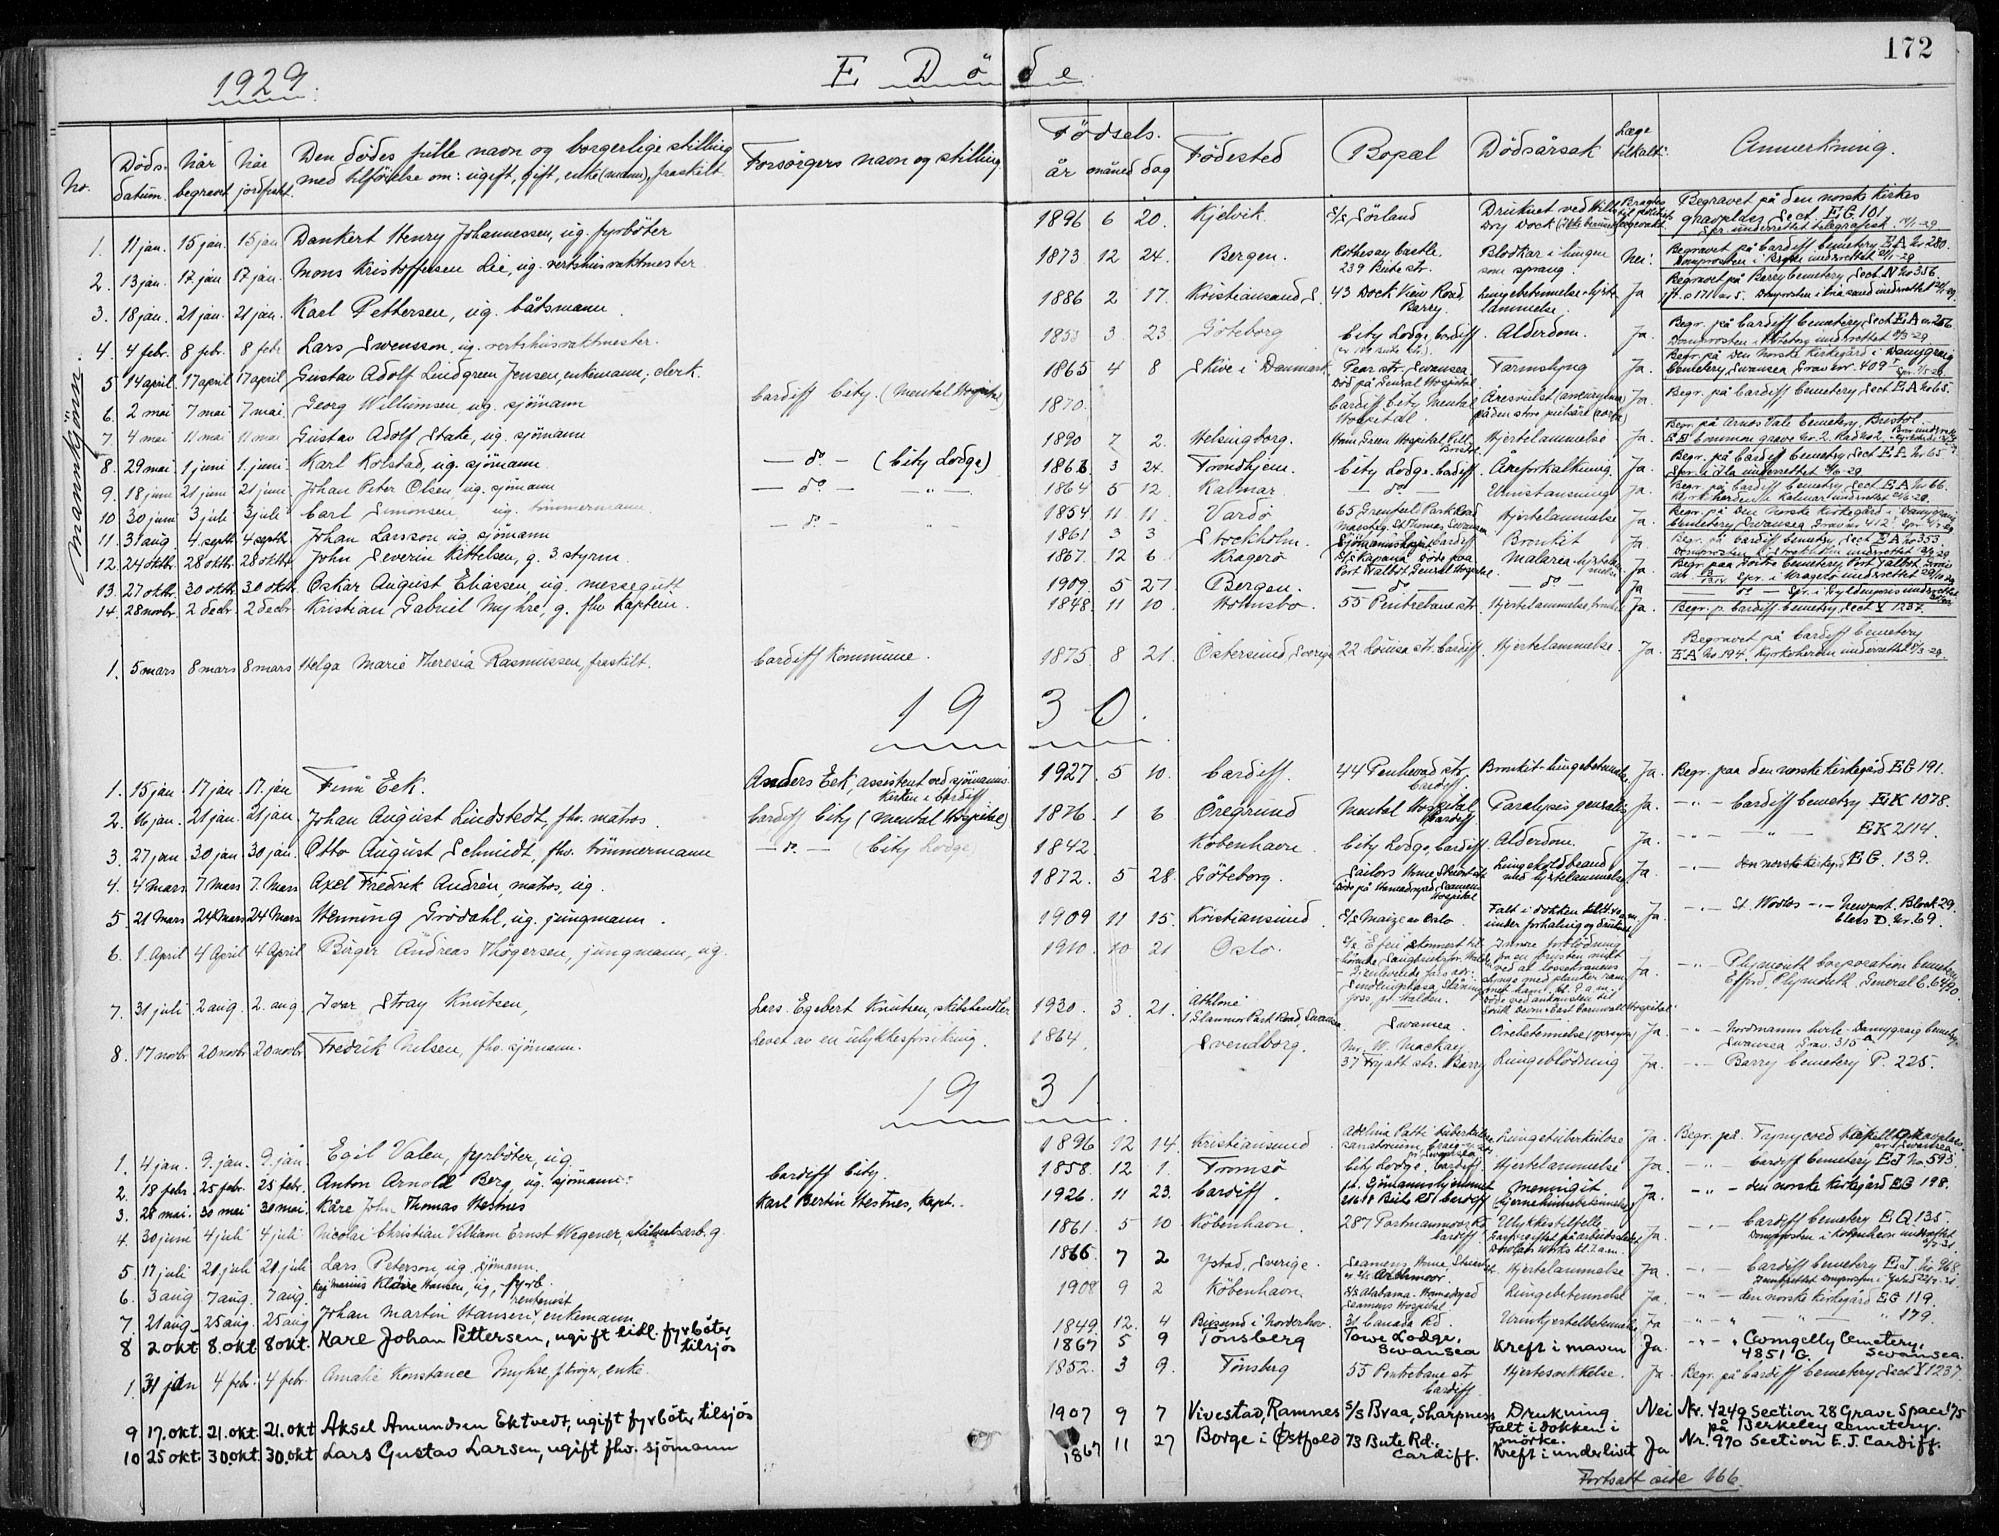 172
1929.
E Döde
No.
Döds-datum.
Når begravet
Når jordfestet.
Den dödes fulle navn og borgerlige stilling med tilföielse om: ugift, gift, enke(mann), fraskilt.
Forsörgers navn og stilling
Födsels-
år måned dag
Födested
Bopæl
Dödsårsak
Læge tilkalt:
Anmerkning.
Mannkjönn.
1. 11 jan. 15 jan. 15 jan Dankert Henry Johannessen, ug. fyrböter 1896 6 20. Kjelvik. S/S Sörland Begravet på den norske kirkes gravplads Sect. EG. 101
2. 13 jan. 17 jan 17 jan. Mons Kristoffersen Lie, ug. vertshusvaktmester 1873 12 24. Bergen. Rothesay Castle. 239 Bute str. Blodkar i lungen som sprang. Nei. Begravet på Cardiff Cemetery EA No 280.
3. 18 jan. 21 jan. 21 jan. Karl Pettersen, ug. båtsmann. 1886 2 17. Kristiansund, S. 43 Dock View Road, Barry. Lungebetennelse-hjertelammelse. Ja Begravet på Barry Cemetery, Sect. N No 356.
4. 4 febr. 8 febr. 8 febr Lars Swensson, ug. vertshusvaktmester. 3 23 Göteborg City Lodge, Cardiff. Alderdom. Ja. Begr. på Cardiff Cemetery, Sect EA
5 14 april. 17 april 17 april Gustav Adolf Lindgreen Jensen, enkemann; clerk. 1865 4 8 Skive i Danmark Swansea Tarmslyng Ja. Begr. på Den Norske Kirkegård i Danygraig Cemetery, Swansea Grav nr. 409
6. 2 mai 7 mai 7 mai. Georg Williumsen ug. sjömann Cardiff City. (Mental Hospital) 1870. Cardiff City Mental Hospital. Ja. Begr. på Cardiff Cemetery, Sect EA No 65.
7. 4 mai 11 mai 11 mai Gustav Adolf Stake, ug. sjömann 1890 7 2. Helsingborg. Hjertelammelse Ja. Begr. på Arnos Vale Cemetery, Bristol. Common grave No. 2.
8. 29 mai. 1 juni 1. juni. Karl Kolstad, ug. sjömann — do — (City Lodge) 3 24. Trondhjem. City Lodge. Cardiff. Åreforkalkning. Ja. Begr. på Cardiff Cemetery, Sect
9. 18 juni 21 juni 21 juni Johan Peter Olsen, ug. sjömann — do — — „ — 1864 5 12 Kalmar. — do — Ja. Begr. på Cardiff Cemetery Sect EA No 66.
10 30 juni 3 juli 3 juli Carl Simonsen ug. tömmermann. 1854 11 11 Vardö 65 Grenfell Park Road Hjertelammelse Ja. Begr. på Den norske Kirkegård i Danygraig Cemetery, Swansea Grav nr 412.
11. 31 aug 4. septb 4. septb Johan Larsson ug. sjömann — do — 1861 3 3 Stockholm. Cardiff Bronkit Ja. Begr. på Cardiff Cemetery, Sect EA No 353.
12. 24 oktb. 28 oktb. 28 oktb. John Severin Kittelsen, g. 3 styrm 1867. 12 6. Kragerö S/S Kapana Malaria-hjertelammelse Ja.
13. 27 oktb. 30 oktb. 30 oktb. Oskar August Eliassen, ug. messegutt 1909. 5 27 Bergen. do — do — Ja.
14. 28 novbr. 2 decbr. 2 decbr. Kristian Gabriel Myhre, g. fhv kaptein. 1848. 11 10. Holmsbo. 55 Pentrebane str. Hjertelammelse Ja. Begr. p. Cardiff Cemetery, Sect. Y 1237.
1. 5 mars 8 mars 8 mars Helga Marie Theresia Rasmussen, fraskilt. Cardiff Kommune. 1875. 8 21. Östersund, Sverige 22 Louisa str. Cardiff. Hjertelammelse. Ja. Begravet på Cardiff Cemetery EA No 194. Kyrkoherden underrettet
1930.
1. 15 jan 17 jan 17. jan Finn Eek. Anders Eek, assistent ved sjömanns-kirken i Cardiff 1927. 5 10. Cardiff. 44 Penhevad str. Cardiff. Bronkit-lungebetennelse Ja. Begr. paa den norske kirkegård EG 191.
2. 16 jan. 21 jan. 21 jan. Johan August Lindstedt, fhv. matros. Cardiff City (Mental Hospital) 1876. 1 6 Öregrund Mental Hospital Cardiff Paralysis generalis Ja. — „ — Cardiff Cemetery EK 1078.
3. 27 jan 30 jan. 30 jan. Otto August Schmidt, fhv. tömmermann — do — (City Lodge) 1842. Köbenhavn City Lodge, Cardiff. Alderdom. Ja. — „ — — „ — EK 2114.
4. 4 Mars 7 Mars 7. Mars Axel Fredrik Andrén, matros, ug. 1872. 5 28. Göteborg. Lungekoldbrand med hjertelammelse Ja. — „ — den norske kirkegd EG. 139.
5. 21 Mars 24 Mars 24 Mars Henning Grödahl, ug. jungmann. 1909 11 15. Kristiansund. S/S Maize av Oslo Falt i dokken under forhaling og druknet Ja. — „ — St. Woolos — „ — Newport. Block 29. Class D. Nr. 69.
6. 1. April 4 April 4 April Birger Andreas Thögersen, jungmann, ug. 1910. 10 21 Oslo. Ja. — „ — Plymouth Corporation Cemetery Efford, Plymouth. General C. 6490.
7. 31 juli 2 aug. 2. aug. Ivar Stray Knutsen, Lars Egebert Knutsen, skibshandler 1930. 3. 21. "Athlone" 1 Glanmor Park Road, Swansea Swansea. Örebetennelse Ja — „ — Nordmanns hvile-Danygraig Cemetery Swansea Grav. 315a
8. 17 novbr 20 novbr 20 novbr. Fredrik Nilsen, fhv. sjömann. Levet av en ulykkesforsikring. 1864. Svendborg. Mr. W. Mackay 37 Fryatt str. Barry Lungeblödning Ja. — „ — Barry Cemetery P. 225.
1931
1. 4 jan. 9. jan. 9. jan Egil Valen, fyrböter, ug. 1896 12 14. Kristiansund Adelina Patti Lungetuberkulose Ja. Begr. på
2. 18 febr. 25 febr. 25 febr. Anton Arnold Berg, ug. sjömann. Cardiff City. 1858. 12 1. Tromsö City Lodge, Cardiff. Hjertelammelse Ja. — „ — Cardiff Cemetery EJ No. 593.
3. 28 mai. 30 mai 30 mai. Kåre John Thomas Hestnes Karl Bertin Hestnes, kapt. 1926. 11 23. Cardiff. Meningit Ja. — „ — den norske kirkegård EG 198.
4. 30 juni 4 juli 4 juli. Nicolai Christian Villiam Ernst Wegener, g. 1861. 5 10 Köbenhavn. 287 Portmanmoor Rd Cardiff. Ulykkestilfelle Ja. — „ — Cardiff Cemetery EQ 135.
5. 17 juli 20. juli 20. juli Lars Peterson, ug. sjömann. 1866 7 2 Ystad, Sverige. Seamens Home, Hjertelammelse Ja. — „ — Cardiff Cemetery EJ. No. 968.
6. 3 aug 7 aug. 7 aug. Marius Hansen, ug, fyrb. 1908 9 2 Köbenhavn. S/S Alabama. Hamadryad Seamens Hospital. Lungebetennelse Ja — „ — den norske kirkegård EG 119.
7. 21 aug. 25 aug. 25 aug Johan Martin Hansen, enkemann. rentenist 1849 12. 4 31 Canada Rd. Ja. — „ — „ „ 179.
8 2 okt 8. okt 8 okt. Karl Johan Pettersen, ugift tidl. fyrböter tilsjös 1867 5 9 Tönsberg Tawe Lodge, Swansea Kreft i maven Ja. — „ — Cwmgelly Cemetery, 4851 G. Swansea.
1. 31 jan 4 febr. 4 febr. Amalie Konstance Myhre, enke. 1852. 3 9. Tönsberg 55 Pentrebane str Cardiff. Hjertesvekkelse. Ja. Begr. på Cardiff Cemetery, Sect Y 1237.
9 17. okt. 21. okt. 21. okt Aksel Amundsen Ektvedt, ugift fyrböter tilsjös 1907 9 7 Vivestad, Ramnes S/S Braa, Sharpness Drukning Falt i dokken i mörke. Nei Nr. 4249 Section 28 Grave Space 175 på Berkeley Cemetery.
10 25 okt. 30 okt. 30. okt Lars Gustav Larsen, ugift fhv. sjömann 1867 11 27 Borge i Østfold 73 Bute Rd., Cardiff. Kreft i underlivet Ja Nr. 970 Section E.J. Cardiff.
Fortsatt side 166.